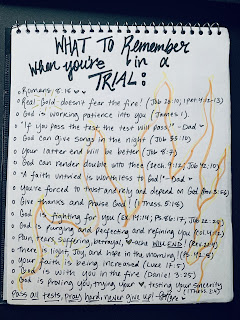 WHAT TO Remember
when you're in a
TRIAL:
Romans, 8:16
Real Gold doesn't fear the fire! (Job 23:10, 1 Pet 4:12-13)
God is working patience into you (James 1).
"If you pass the test the test will pass!" - Dad
God can give songs in the night (Job 35:10)
Your latter end will be better (Job 8:7)
God can render double unto thee (Zech. 9:12, Job 42:10)
"A faith untried is worthless to God!" - Dad
You're forced to trust and rely and depend on God
Give thanks and Praise God! (1 Thess. 5:18)
God is fighting for you (ex. 14:14, Ps. 86:17, Job 22:29)
God is purging and perfecting and refining you
Pain, tears, suffering, betrayal, ache WILL END! (Rev. 21:4)
There is light, Joy, and hope in the morning!
Your faith is being increased (Luke 17:5)
God is with you in the fire (Daniel 3:25)
God is proving you, trying your, testing your sincerity
Pass all tests, pray hard, never give up!